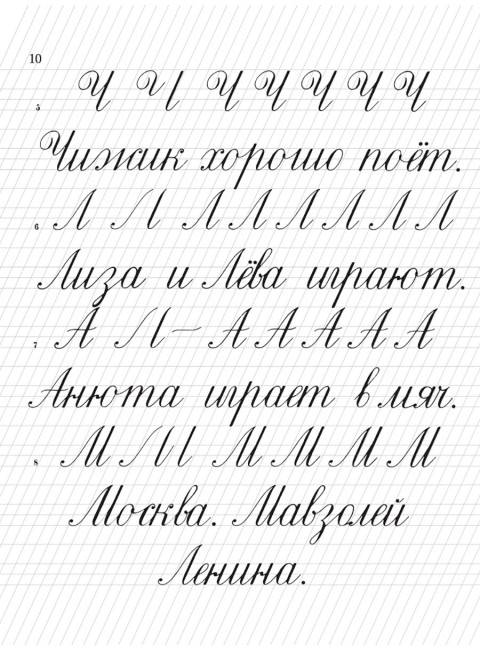 10
5 Ч Ч Ч Ч Ч Ч Ч
Чижик хорошо поёт.
6 Л Л Л Л Л Л Л Л
Лиза и Лёва играют.
7 А Л ~ А А А А А
Анюта играет в мяч.
8 М Л l М М М М
Москва. Мавзолей
Ленина.